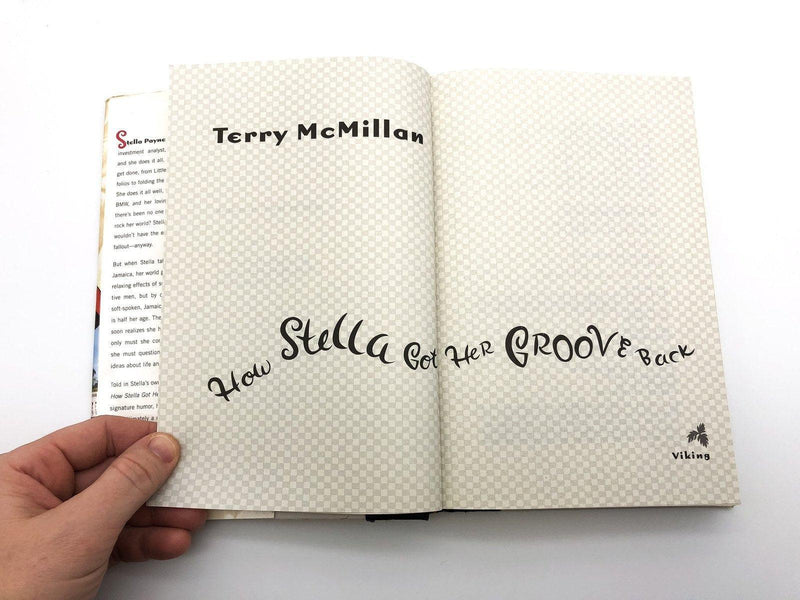 Stella Payne
investment analyst,
and she does it all,
get done, from Little
folios to folding the
She does it all well,
BMW, and her lovin
there's been no one
rock her world? Stell
wouldn't have the e
fallout—anyway.
But when Stella ta
Jamaica, her world
relaxing effects of s
tive men, but by
soft-spoken, Jamaic
is half her age. The
soon realizes she h
only must she con
she must question
ideas about life an
Told in Stella's own
How Stella Got He
signature humor,
Terry McMillan
How Stella Got Her GROOVE Back
Viking